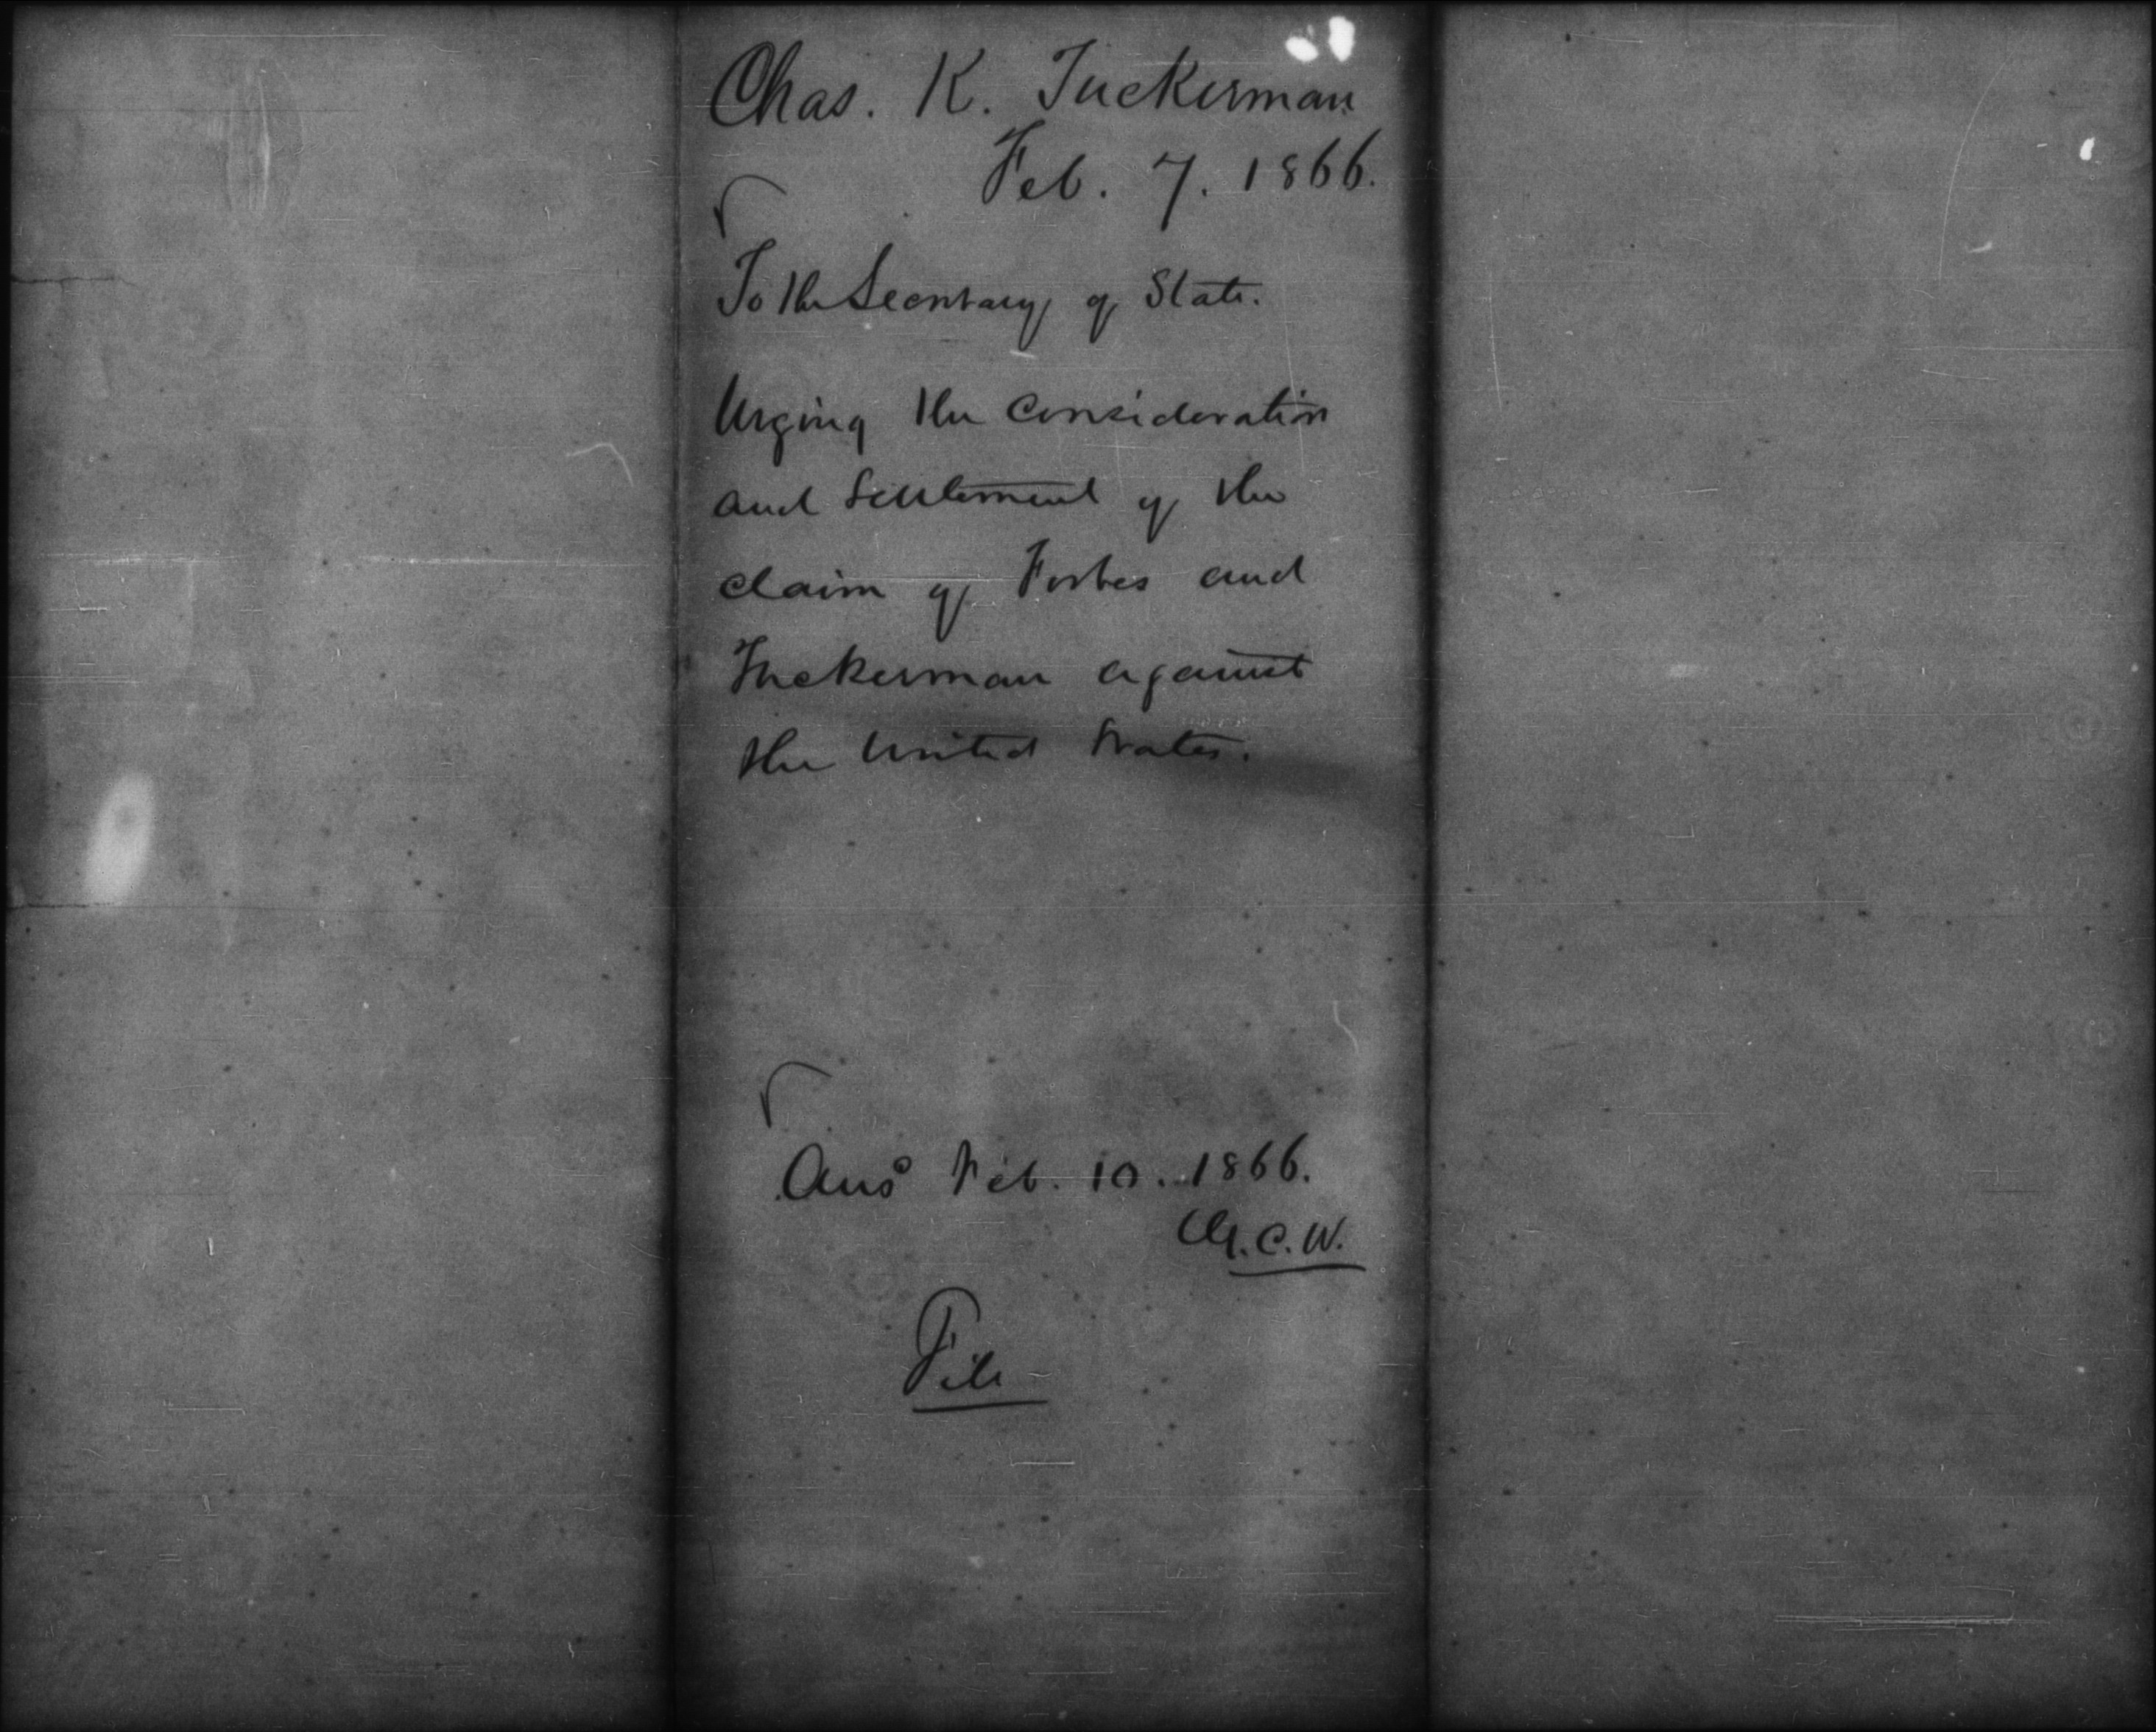 Chas. K. Tuckerman
Feb. 7. 1866.
To the Secretary of State.
Urging the consideration
and settlement of the
claim of Forbes and
Tuckerman against
the United States.
Ansd Feb. 10. 1866.
C.W.
File